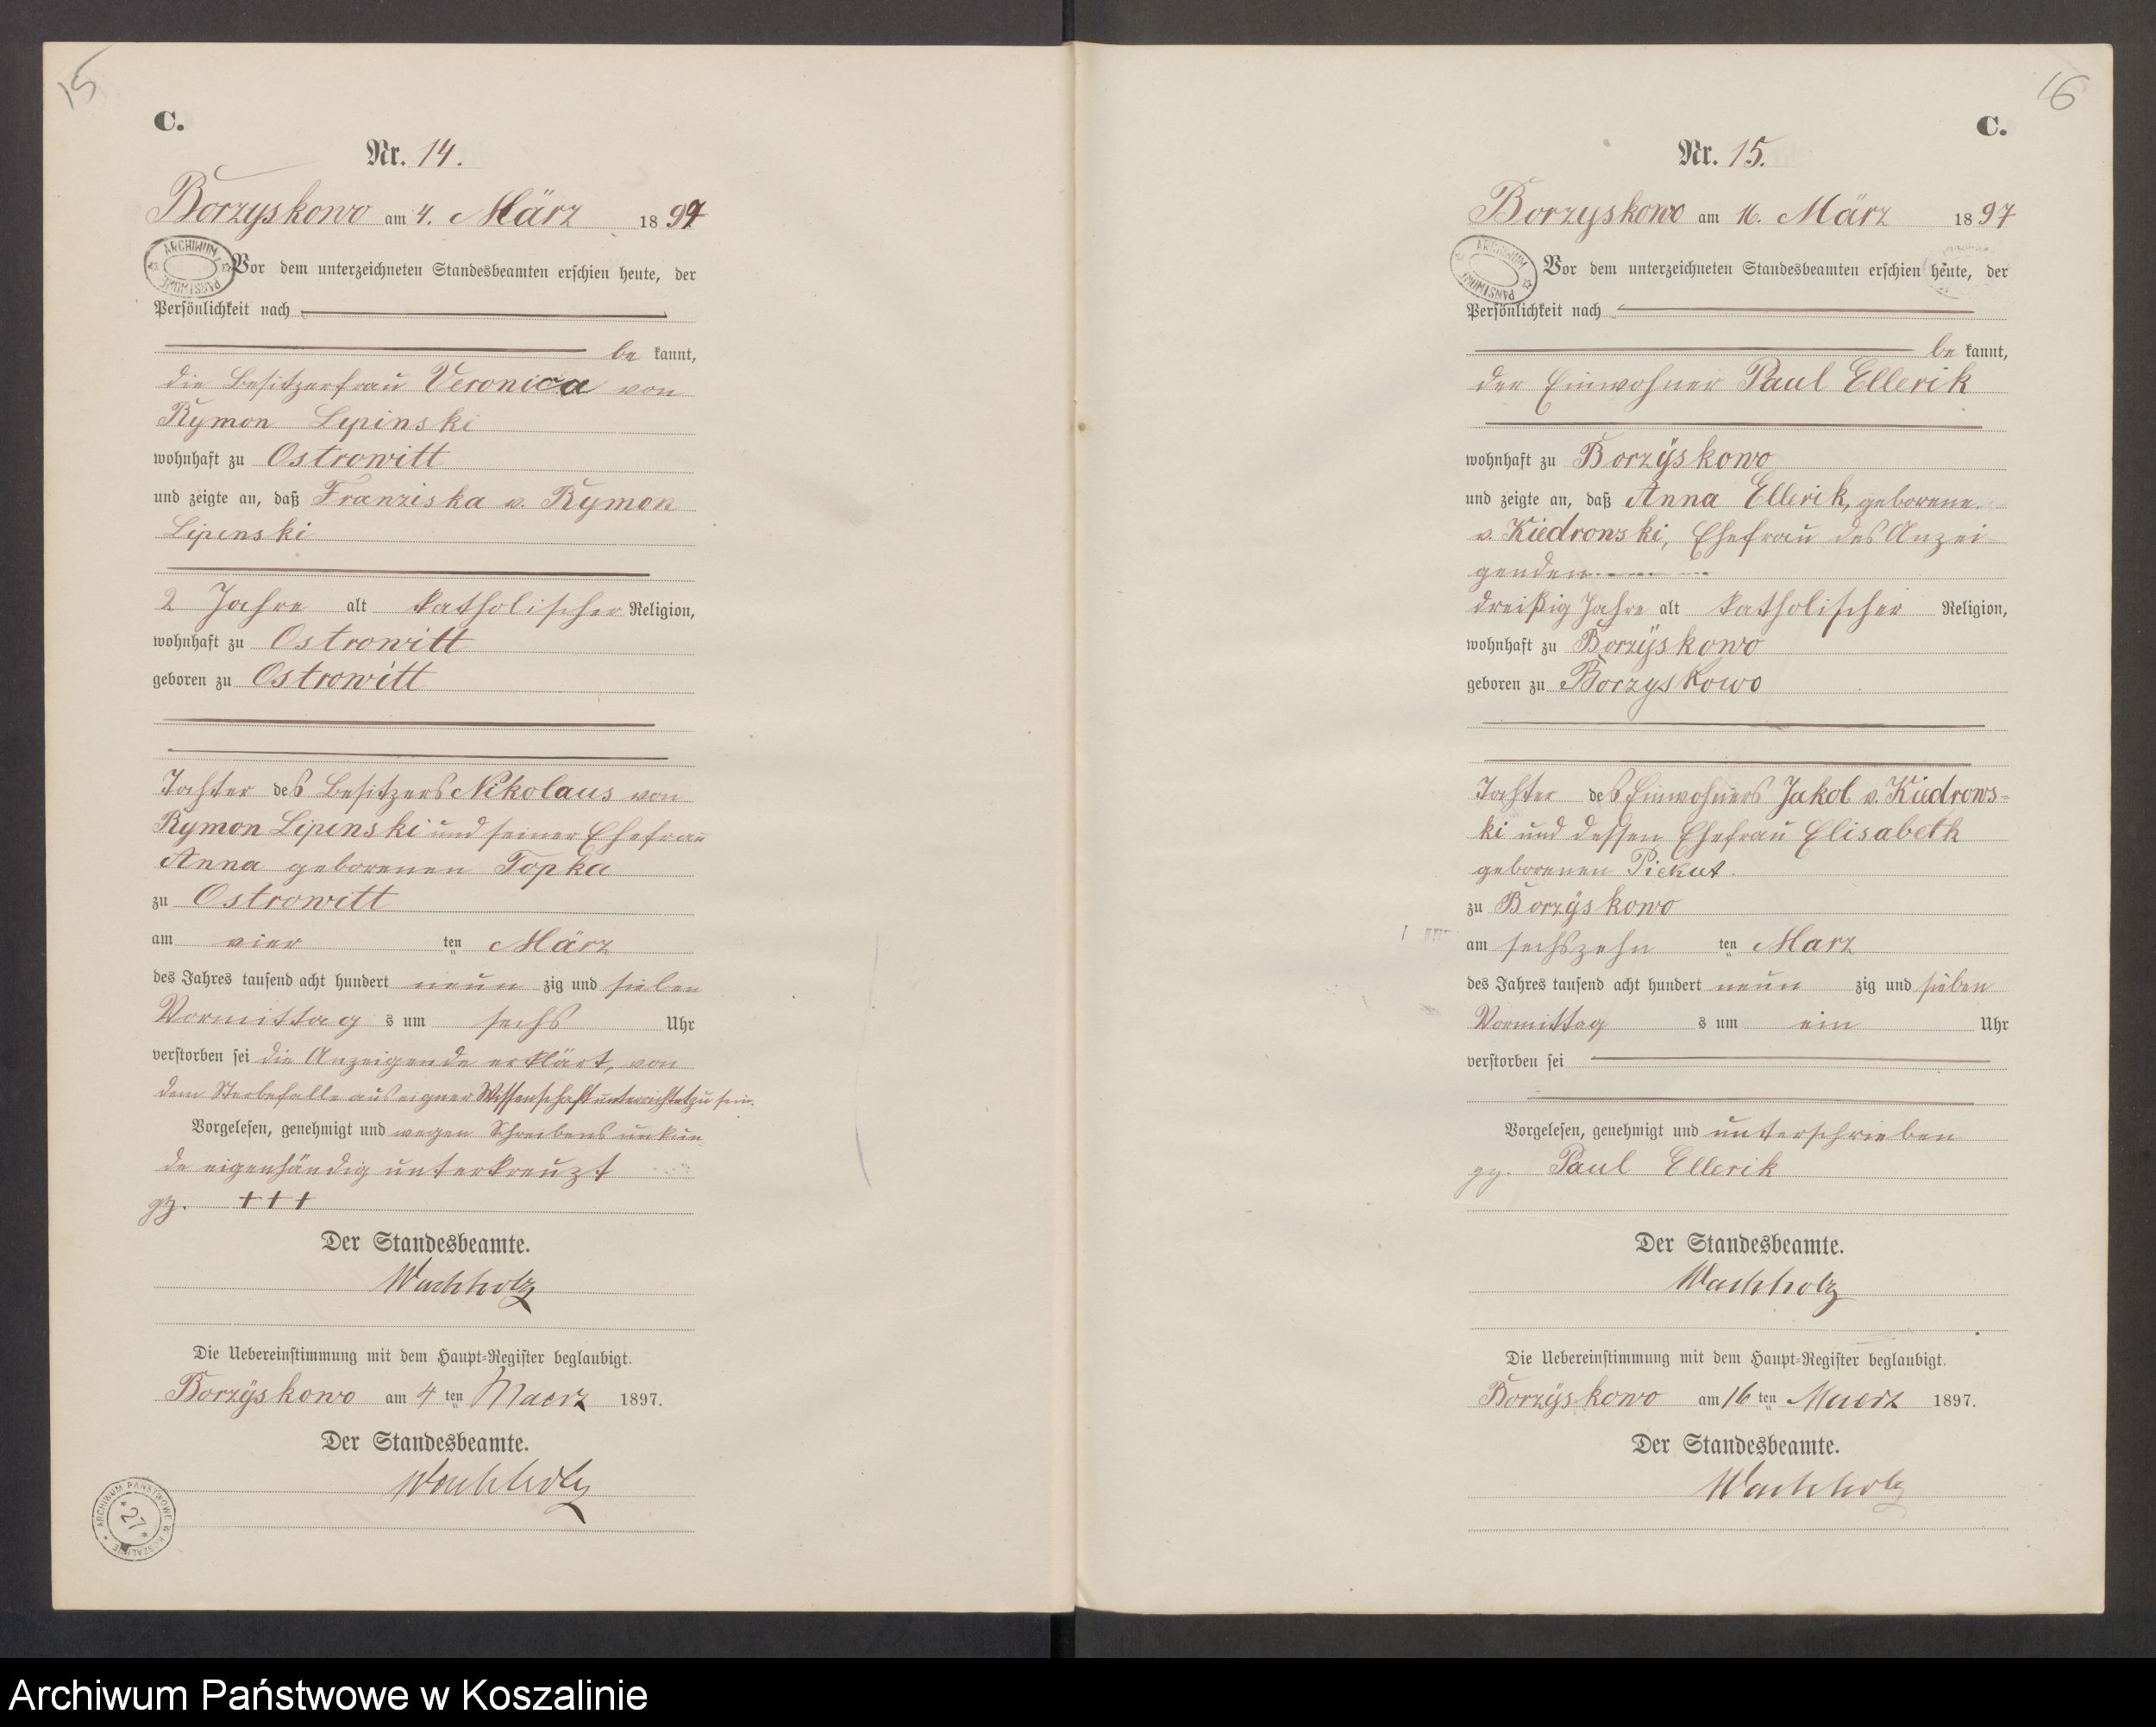 15
C.
Nr. 14.
Borzyskowo am 4. März 1897
ARCHIWUM PAŃSTWOWE
Vor dem unterzeichneten Standesbeamten erschien heute, der
Persönlichkeit nach
be kannt,
die Besitzerfrau Veronica von
Rymon Lipinski
wohnhaft zu Ostrowitt
und zeigte an, daß Franziska v. Rymon
Lipinski
2 Jahre alt katholischer Religion,
wohnhaft zu Ostrowitt
geboren zu Ostrowitt
Tochter des Besitzers Nikolaus von
Rymon Lipinski und seiner Ehefrau
Anna geborenen Topka
zu Ostrowitt
am vier ten März
des Jahres tausend acht hundert neun zig und sieben
Vormittag s um sechs Uhr
verstorben sei die Anzeigende erklärt, von
dem Sterbefalle aus eigner Wissenschaft unterrichtet zu sein.
Vorgelesen, genehmigt und wegen Schreibens unkun-
de eigenhändig unterkreuzt
gz. +++
Der Standesbeamte.
Wachholz
Die Uebereinstimmung mit dem Haupt-Register beglaubigt.
Borzÿskowo am 4 ten Maerz 1897.
Der Standesbeamte.
Wachholz
ARCHIWUM PAŃSTWOWE W KOSZALINIE * 27 *
16
C.
Nr. 15.
Borzyskowo am 16. März 1897
ARCHIWUM PAŃSTWOWE
Vor dem unterzeichneten Standesbeamten erschien heute, der
Persönlichkeit nach
be kannt,
der Einwohner Paul Ellerik
wohnhaft zu Borzÿskowo
und zeigte an, daß Anna Ellerik, geborene
v. Kiedrowski, Ehefrau des Anzei-
genden
dreißig Jahre alt katholischer Religion,
wohnhaft zu Borzÿskowo
geboren zu Borzyskowo
Tochter des Einwohners Jakob v. Kiedrows-
ki und dessen Ehefrau Elisabeth
geborenen Piekut.
zu Borzÿskowo
am sechszehn ten Marz
des Jahres tausend acht hundert neun zig und sieben
Vormittag s um ein Uhr
verstorben sei
Vorgelesen, genehmigt und unterschrieben
gz. Paul Ellerik
Der Standesbeamte.
Wachholz
Die Uebereinstimmung mit dem Haupt-Register beglaubigt.
Borzÿskowo am 16 ten Maerz 1897.
Der Standesbeamte.
Wachholz
Archiwum Państwowe w Koszalinie